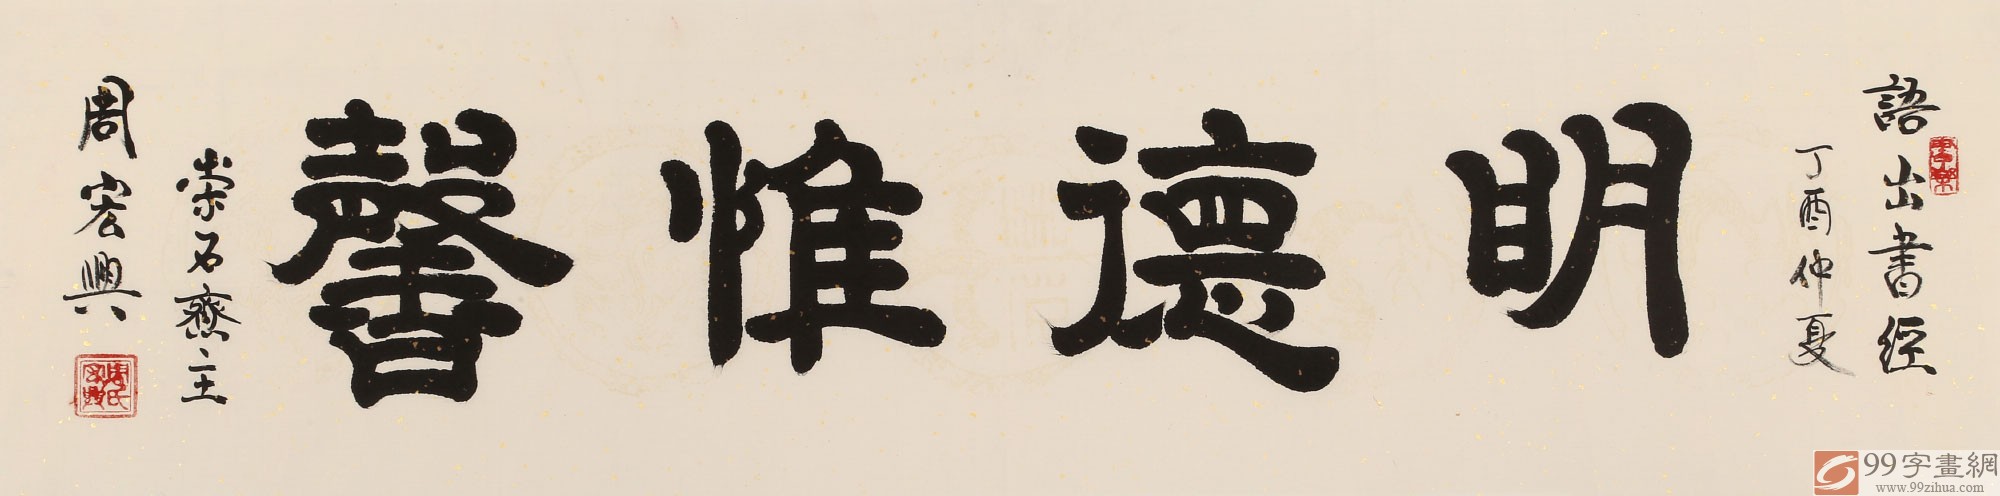 語出書經
丁酉仲夏
明德惟馨
崇石齋主
周宏興
周氏宏興
99字畫網
www.99zihua.com